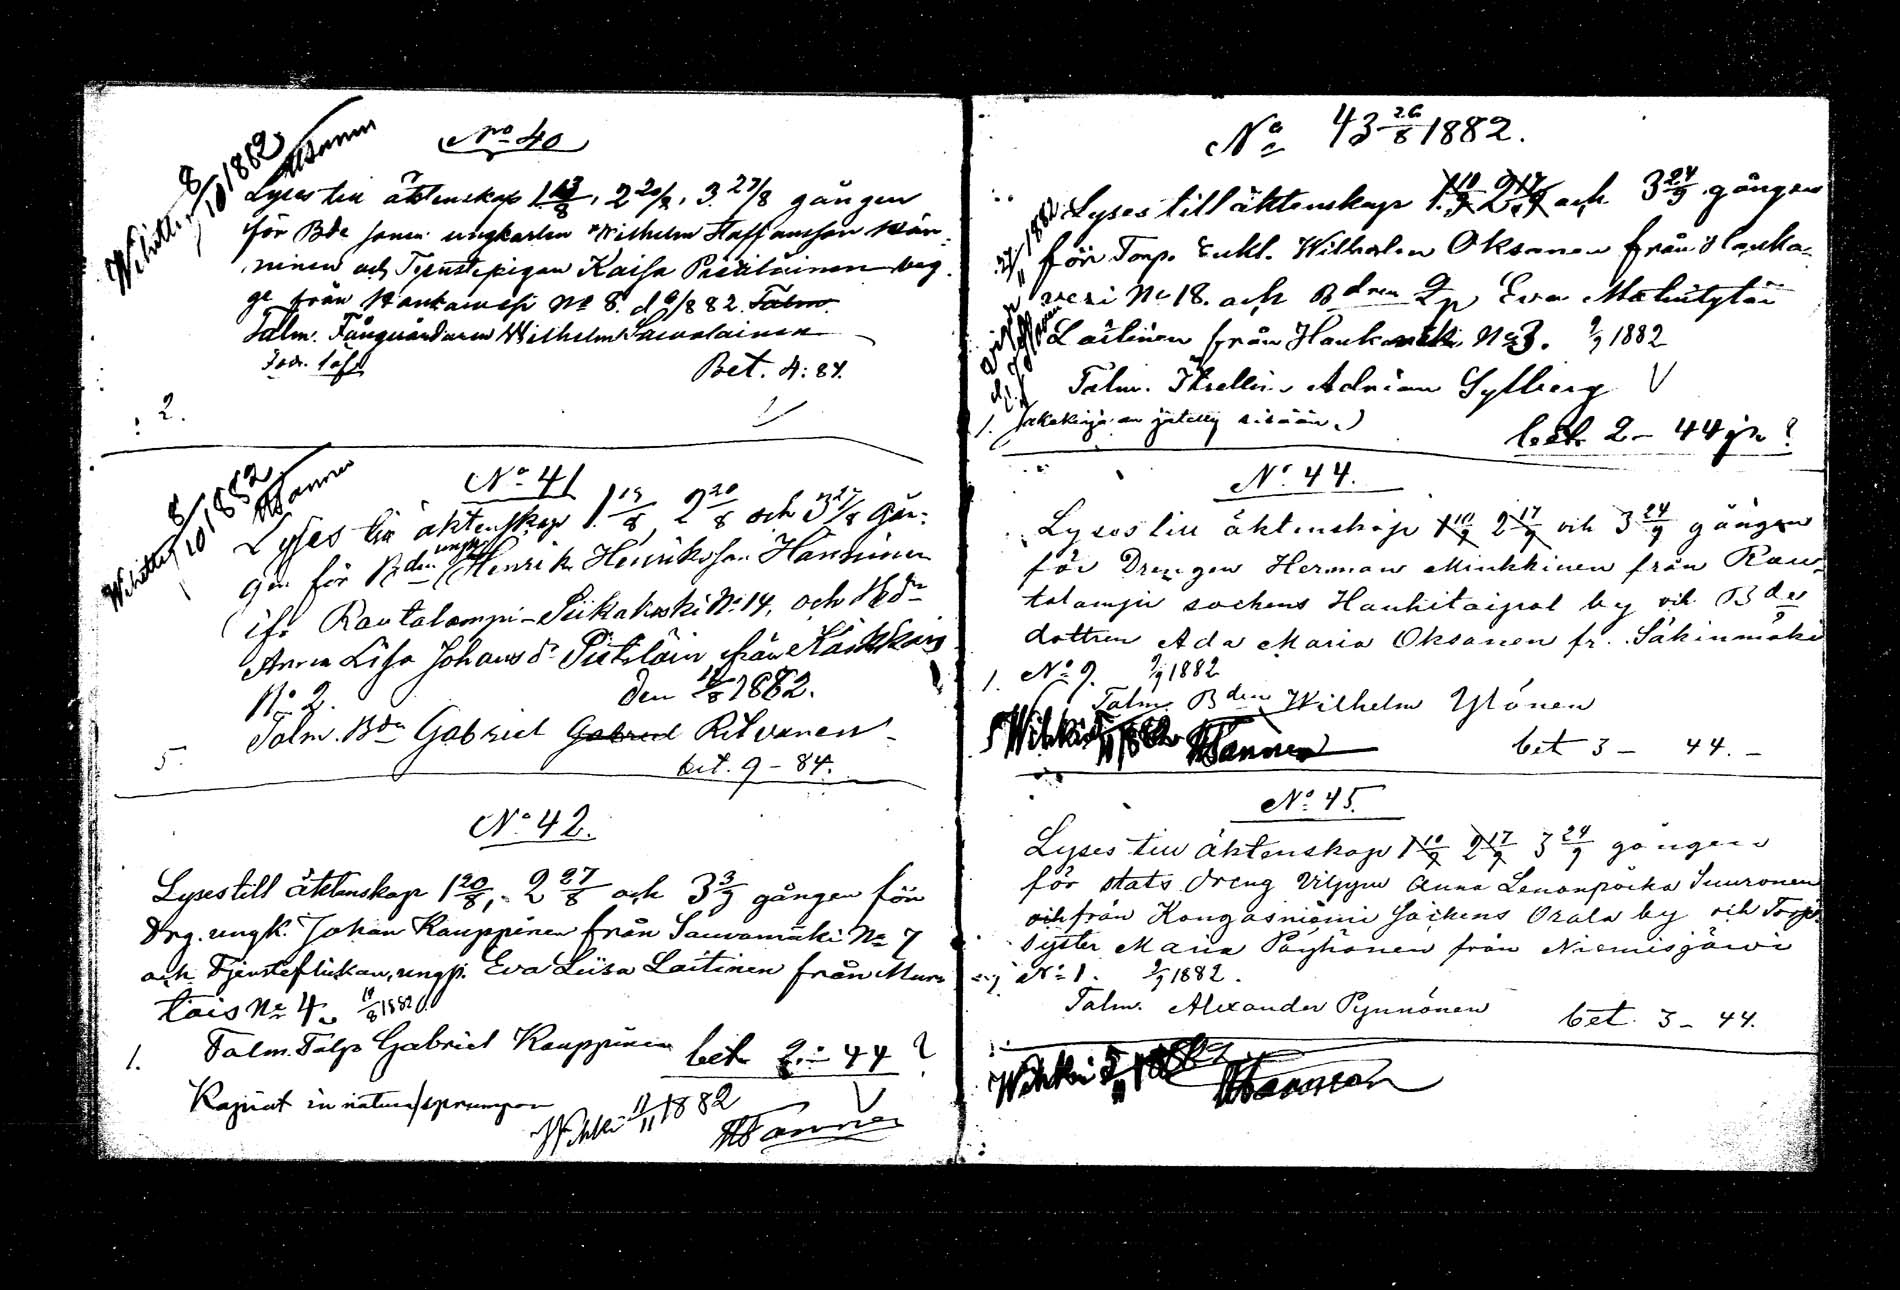 No 40
Wihitty 8/10 1882
Lyses till äktenskap 1 13/8, 2 20/8, 3 27/8 gången
för Bde sonen ungkarlen Wilhelm Staffansson Hän-
ninen och Tjenstepigan Kaisa Pasilainen bag-
ge från Hankamäki No 8. d 6/8 82.
Talm. Fångvårdaren Wilhelm Sawolainen
Bet. 4: 84.
2.
No 41
Wihitty 8/10 1882
Lyses till äktenskap 1. 13/8 2 20/8 och 3 27/8 gån-
gen för Bden ungk. Henrik Henriksson Hänninen
ifr Rautalampi Siikakoski No 14, och Bde dr
Anna Lisa Johans dr Pietiläin från
No 2. den 12/8 1882.
Talm. Bdn Gabriel Gabriel Ritvanen
5. bet. 9 - 84.
No 42.
Lyses till äktenskap 1 20/8, 2 27/8 och 3 3/9 gången för
Drg. ungk. Johan Kauppinen från Sauvamäki No 7
och Tjensteflickan, ungp. Eva Liisa Laitinen från Mur-
tois No 4. 19/8 1882.
1. Talm. Talp Gabriel Kauppinen bet 2:- 44 ?
Wihki 12/11 1882
HTanner
No 43 26/8 1882.
Lyses till äktenskap 1 10/9 2 17/9 och 3 24/9 gången
för Torp. Enkl. Wilhelm Oksanen från Hanka-
vesi No 18. och Bdren Eva Mathitytär
Laitinen från Hankamäki No 3. 2/9 1882
Talm. Adrian Sylberg
1.
bet 2 - 44 ?
No 44.
Lyses till äktenskap 1 10/9 2 17/9 och 3 24/9 gången
för Drengen Herman Minkkinen från Rau-
talampi sockens Hanhitaipal by och Bde
dottren Ada Maria Oksanen fr. Säkinmäki
1. No 9. 2/9 1882
Talm. Bden Wilhelm Ylönen
Wihki 5/11 1882 HTanner bet 3 - 44. -
No 45.
Lyses till äktenskap 1 10/9 2 17/9 3 24/9 gången
för stats dreng Anna Lenanpoika Suuronen
och från Kangasniemi Sockens Orala by och Torp.
syster Maria Pöyhönen från Niemisjärwi
No 1. 2/9 1882.
Talm. Alexander Pynnönen bet. 3 - 44.
Wihki 5/11 1882 HTanner